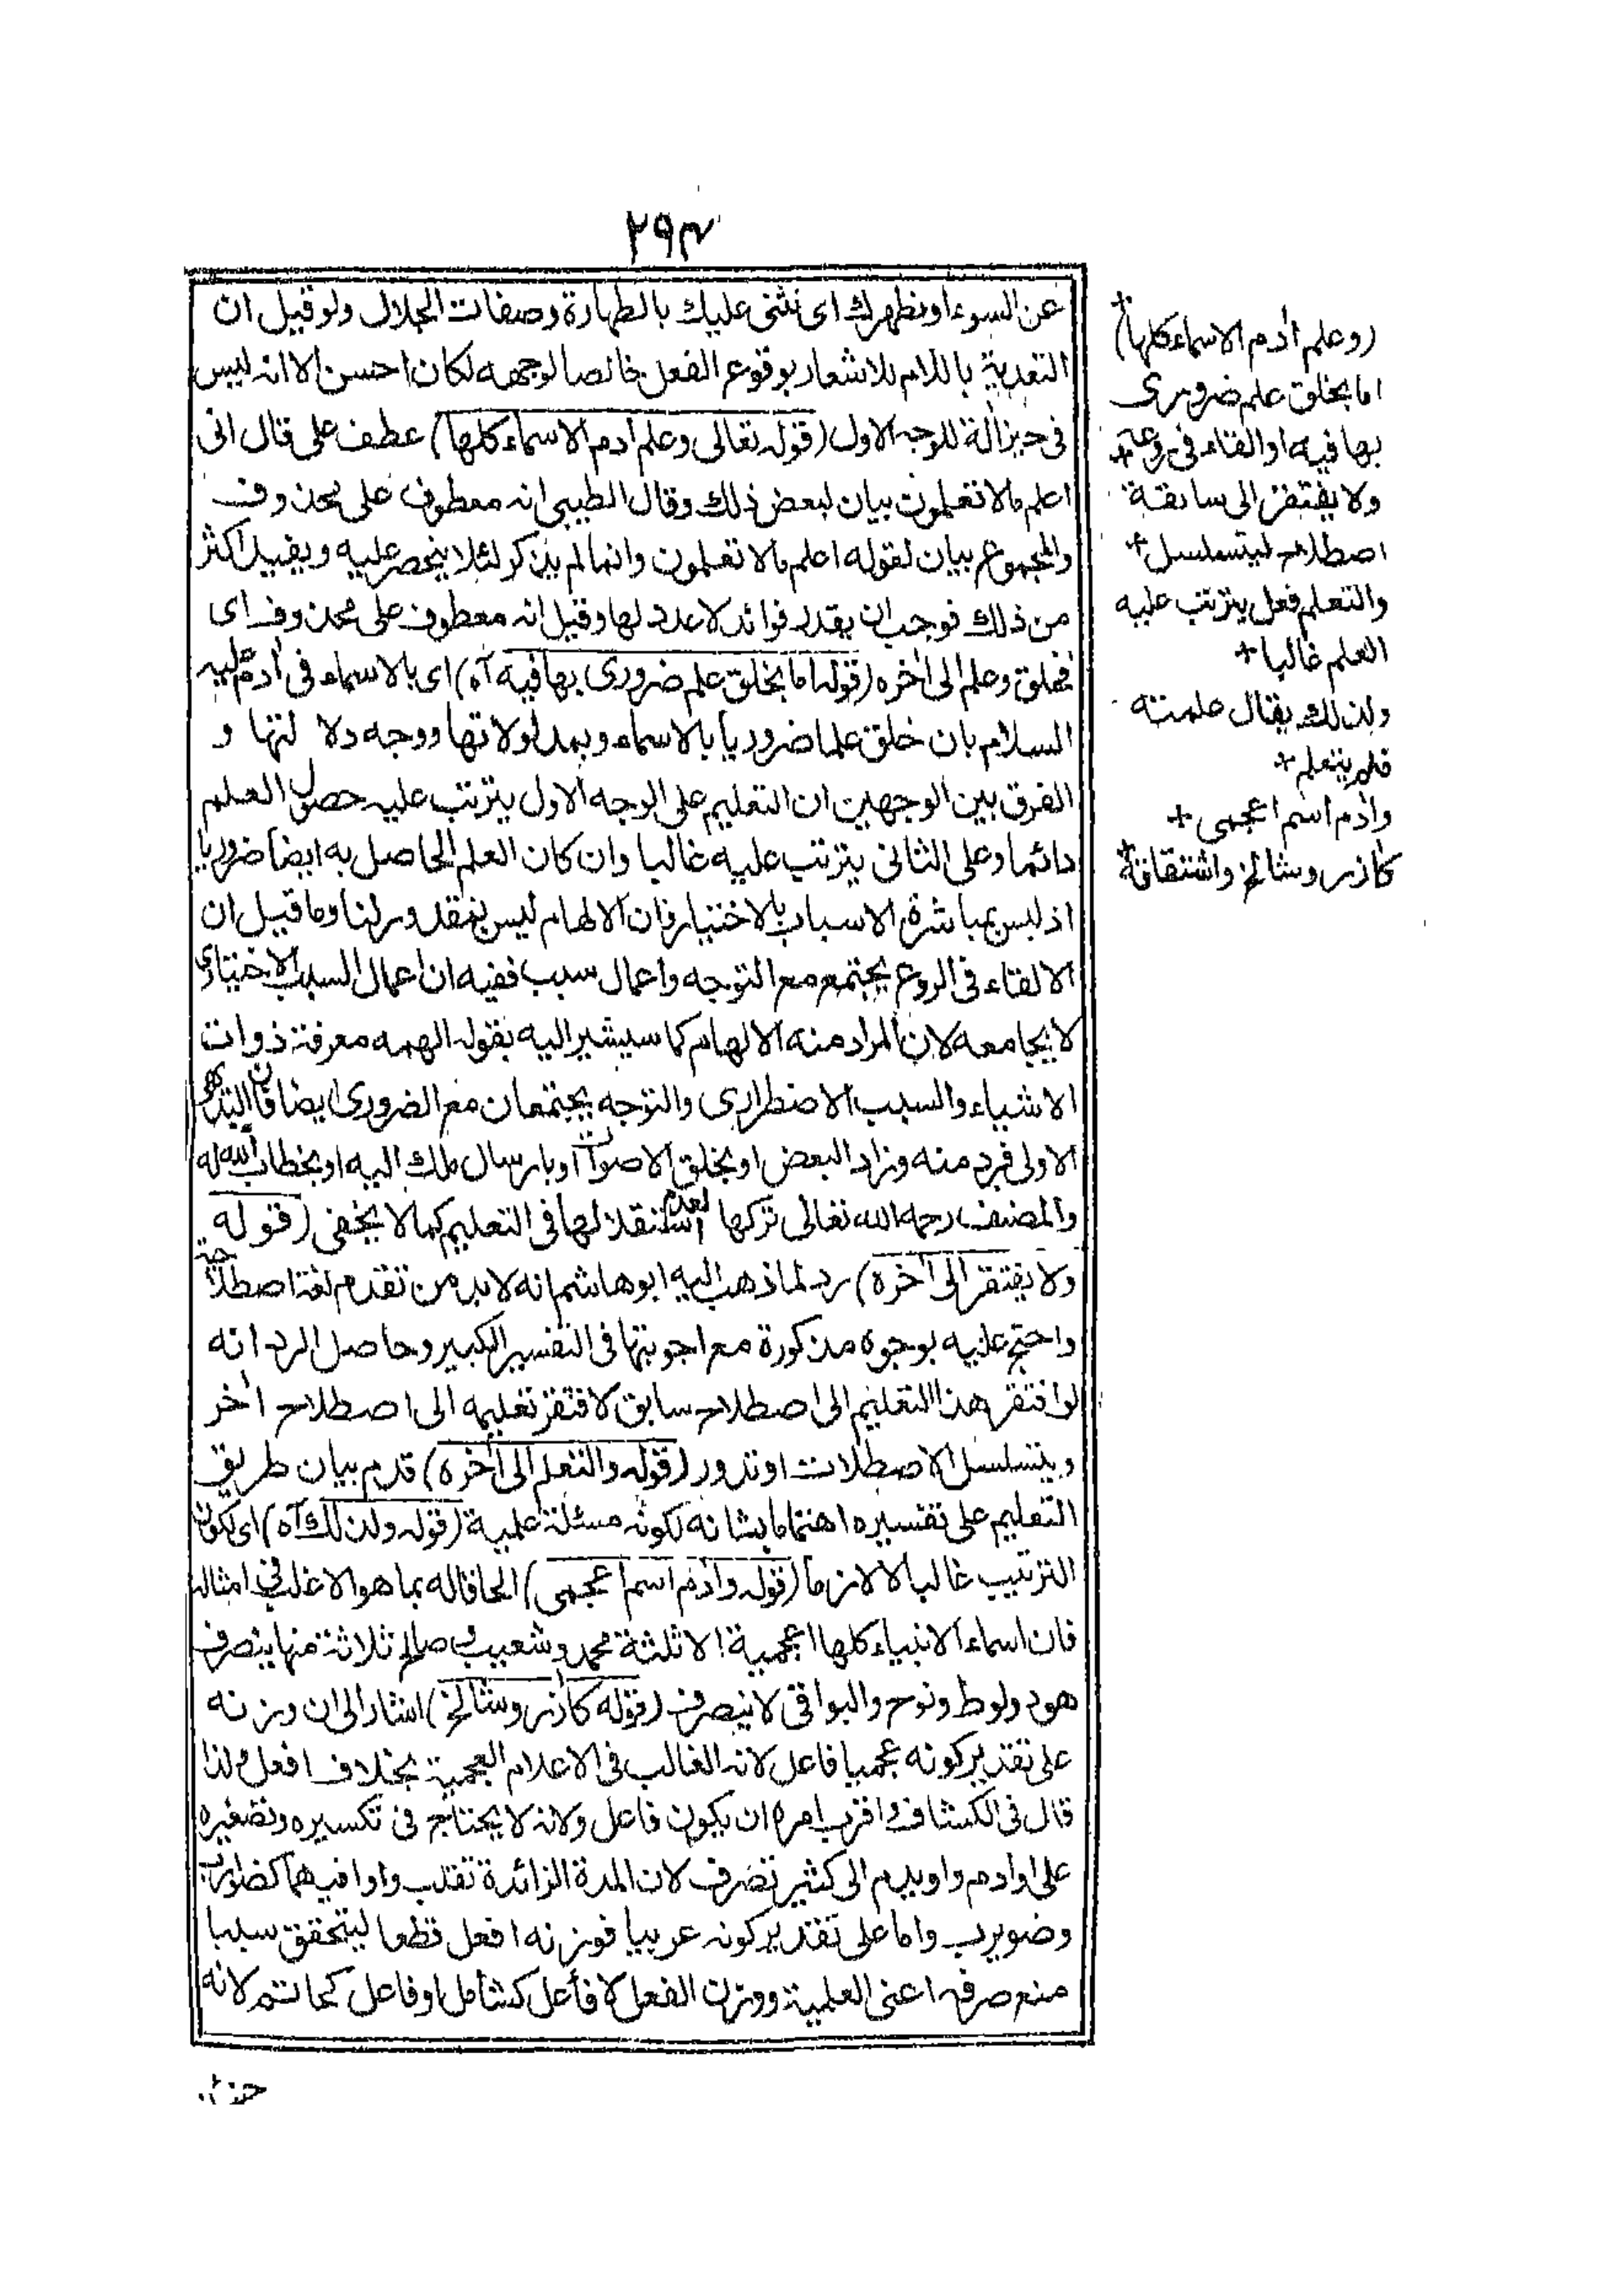 ٢٩٣
عن السوء او نطهرك اى نثنى عليك بالطهارة وصفات الجلال ولو قيل ان
التعدية باللام للاشعار بوقوع الفعل خالصا لوجهه لكان احسن الا انه ليس
فى جزالة للوجه الاول (قوله تعالى وعلم أدم الاسماء كلها) عطف على قال انى
اعلم مالا تعلمون بيان لبعض ذلك وقال الطيبى انه معطوف على محذوف
والمجموع بيان لقوله اعلم مالا تعلمون وانما لم يذكر لئلا ينحصر عليه ويفيد اكثر
من ذلك فوجب ان يقدر فوائد لا عدد لها وقيل انه معطوف على محذوف اى
فخلق وعلم الى أخره (قوله اما بخلق علم ضرورى بها فيه آه) اى بالاسماء فى أدم عليه
السلام بان خلق علما ضروريا بالاسماء وبمدلولاتها ووجه دلا لتها و
الفرق بين الوجهين ان التعليم على الوجه الاول يترتب عليه حصول العلم
دائما وعلى الثانى يترتب عليه غالبا وان كان العلم الحاصل به ايضا ضروريا
اذ ليس بمباشرة الاسباب بالاختيار فان الالهام ليس بمقدور لنا وما قيل ان
الالقاء فى الروع يجتمع مع التوجه واعمال سبب ففيه ان اعمال السبب الاختيارى
لا يجامعه لان المراد منه الالهام كما سيشير اليه بقوله الهمه معرفة ذوات
الاشياء والسبب الاضطرارى والتوجه يجتمعان مع الضرورى ايضا فان البديهى
الاولى فرد منه وزاد البعض او بخلق الاصوات او بارسال ملك اليه او بخطاب الله له
والمصنف رحمه الله تعالى تركها لعدم استقلالها فى التعليم كما لا يخفى (قوله
ولا يفتقر الى أخره) رد لما ذهب اليه ابو هاشم انه لا بد من تقدم لغة اصطلاحية
واحتج عليه بوجوه مذكورة مع اجوبتها فى التفسير الكبير وحاصل الرد انه
لو افتقر هذا التعليم الى اصطلاح سابق لافتقر تعليمه الى اصطلاح أخر
ويتسلسل الاصطلات او تدور (قوله والتعلم الى أخره) قدم بيان طريق
التعليم على تفسيره اهتماما بشانه لكونه مسئلة علمية (قوله ولذلك آه) اى لكون
الترتيب غالبا لا لازما (قوله وأدم اسم اعجمى) الحاقا له بما هو الاغلب فى امثاله
فان اسماء الانبياء كلها اعجمية الا ثلثة محمد وشعيب وصالح ثلاثة منها ينصرف
هود ولوط ونوح والبواقى لا ينصرف (قوله كأزر وشالخ) اشار الى ان وزنه
على تقدير كونه عجميا فاعل لانه الغالب فى الاعلام العجمية بخلاف افعل ولذا
قال فى الكشاف واقرب امره ان يكون فاعل ولانه لا يحتاج فى تكسيره وتصغيره
على اوادم واويدم الى كثير تصرف لان المدة الزائدة تقلب واوا فيهما كضوارب
وضويرب واما على تقدير كونه عربيا فوزنه افعل قطعا ليتحقق سببا
منع صرفه اعنى العلمية ووزن الفعل لا فأعل كشأمل او فاعل كخاتم لانه
(وعلم أدم الاسماء كلها)
اما بخلق علم ضرورى
بها فيه او القاء فى روعه
ولا يفتقر الى سابقة
اصطلاح ليتسلسل
والتعلم فعل يترتب عليه
العلم غالبا
ولذلك يقال علمته
فلم يتعلم
وأدم اسم اعجمى
كأزر وشالخ واشتقاقه